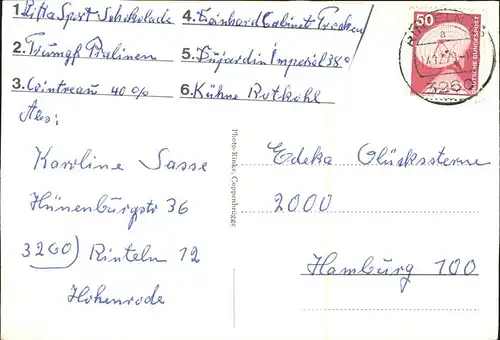 1. Ritta Sport Schokolade
2. Trumpf Pralinen
3. Cointreau 40 %
4. Leinhard Cabinet Trocken
5. Dujardin Imperial 38%
6. Kühne Rotkohl
50
DEUTSCHE BUNDESPOST
RINTELN
a
3260
Abs:
Karoline Sasse
Hünenburgstr 36
3260 Rinteln 12
Hohenrode
Photo-Rinke, Coppenbrügge
Edeka Glückssterne
2000
Hamburg 100